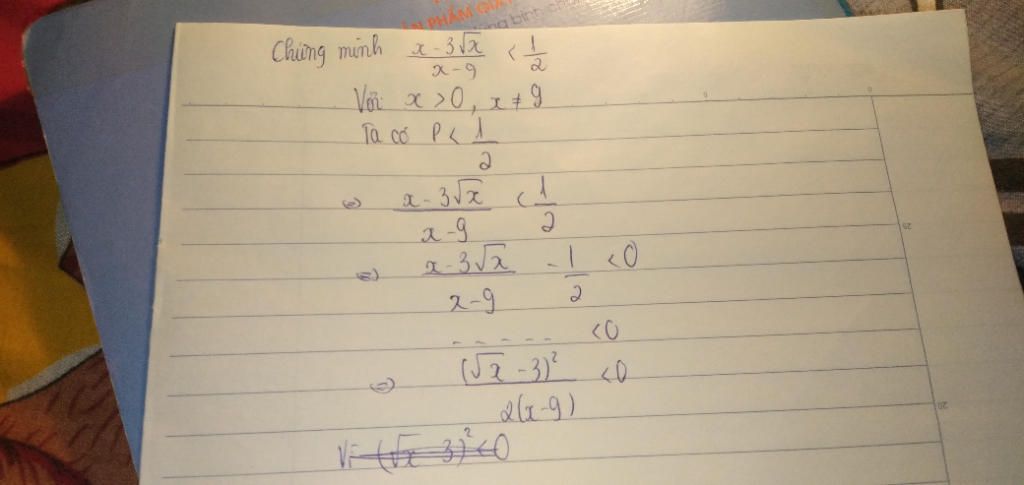 ẨN PHẨM
Chứng minh \frac{x-3\sqrt{x}}{x-9} < \frac{1}{2}
Với x > 0, x ≠ 9
Ta có P < \frac{1}{2}
⇔ \frac{x-3\sqrt{x}}{x-9} < \frac{1}{2}
⇔ \frac{x-3\sqrt{x}}{x-9} - \frac{1}{2} < 0
- - - - - < 0
⇔ \frac{(\sqrt{x}-3)^2}{2(x-9)} < 0
Vì (\sqrt{x}-3)^2 < 0